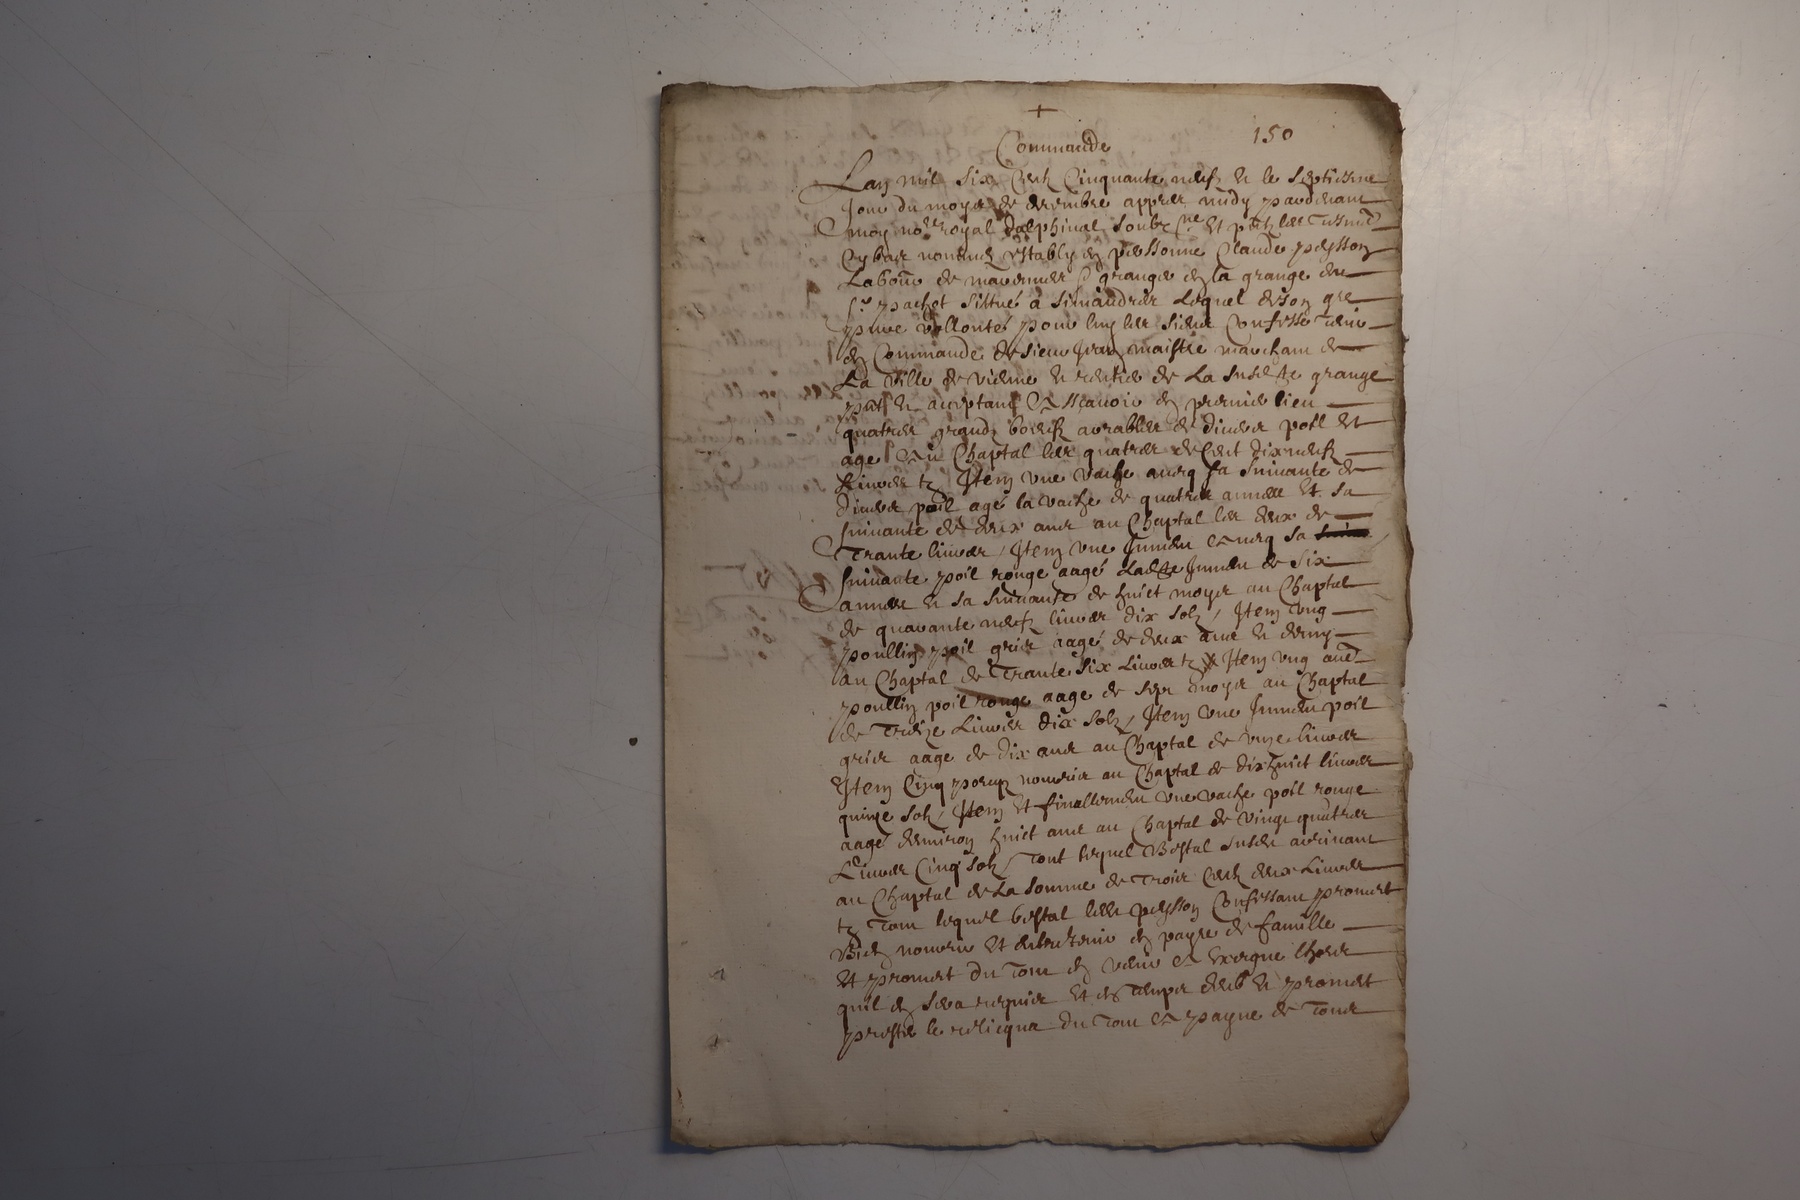 +
150
Commande
Lan mil six centz cinquante neufz & le septiesme
jour du moys de decembre appres midy pardevant
moy no.re royal dalphinal soubz.ne et pntz les tesm.
cy bas nommes estably en personne Claude peysson
Labour de grangier en la grange du
S.r pachet sittué a simandres Lequel de son gre
pure vollonté pour luy les siens confesse tenir
en commande de sieur Jean maistre marchant de
La ville de vienne & rentier de La susd.te grange
pnt & acceptant A sçavoir en premier lieu
quattres grandz boeufz arables de divers poil et
age Au Chaptal les quattres de cent dix neufz
Livres tz Item une vache avecq sa suivante de
divers poil agé la vache de quattre annees et sa
suivante de deux ans au Chaptal les deux de
Trante livres, Item une Jument avecq sa
suivante poil rouge aagé Ladite Jument de six
annees & sa suivante de huict moys au Chaptal
de quarante neufz livres dix solz, Item ung
poullin poil gris aagé de deux ans & demy
au Chaptal de Trante six Livres tz Item ung aut.
poullin poil rouge aage de sept moys au Chaptal
de Treize Livres dix solz, Item une Jument poil
gris aage de dix ans au Chaptal de unze livres
Item Cinq porcqz nourris au Chaptal de dix huict livres
quinze solz, Item et finallement une vache poil rouge
aagé denviron huict ans au Chaptal de vingt quattres
Livres Cinq solz, Tout lequel Bestal susdit arrivant
au Chaptal de La somme de Trois Centz deux Livres
tz Tout lequel bestal led. peysson confessant promet
Bien nourrir et entretenir en payre de famille
et promet du tout en venir A exegue lhors
quil en sera requis et en temps deub & promet
prester le relicqua du tout A payne de tous